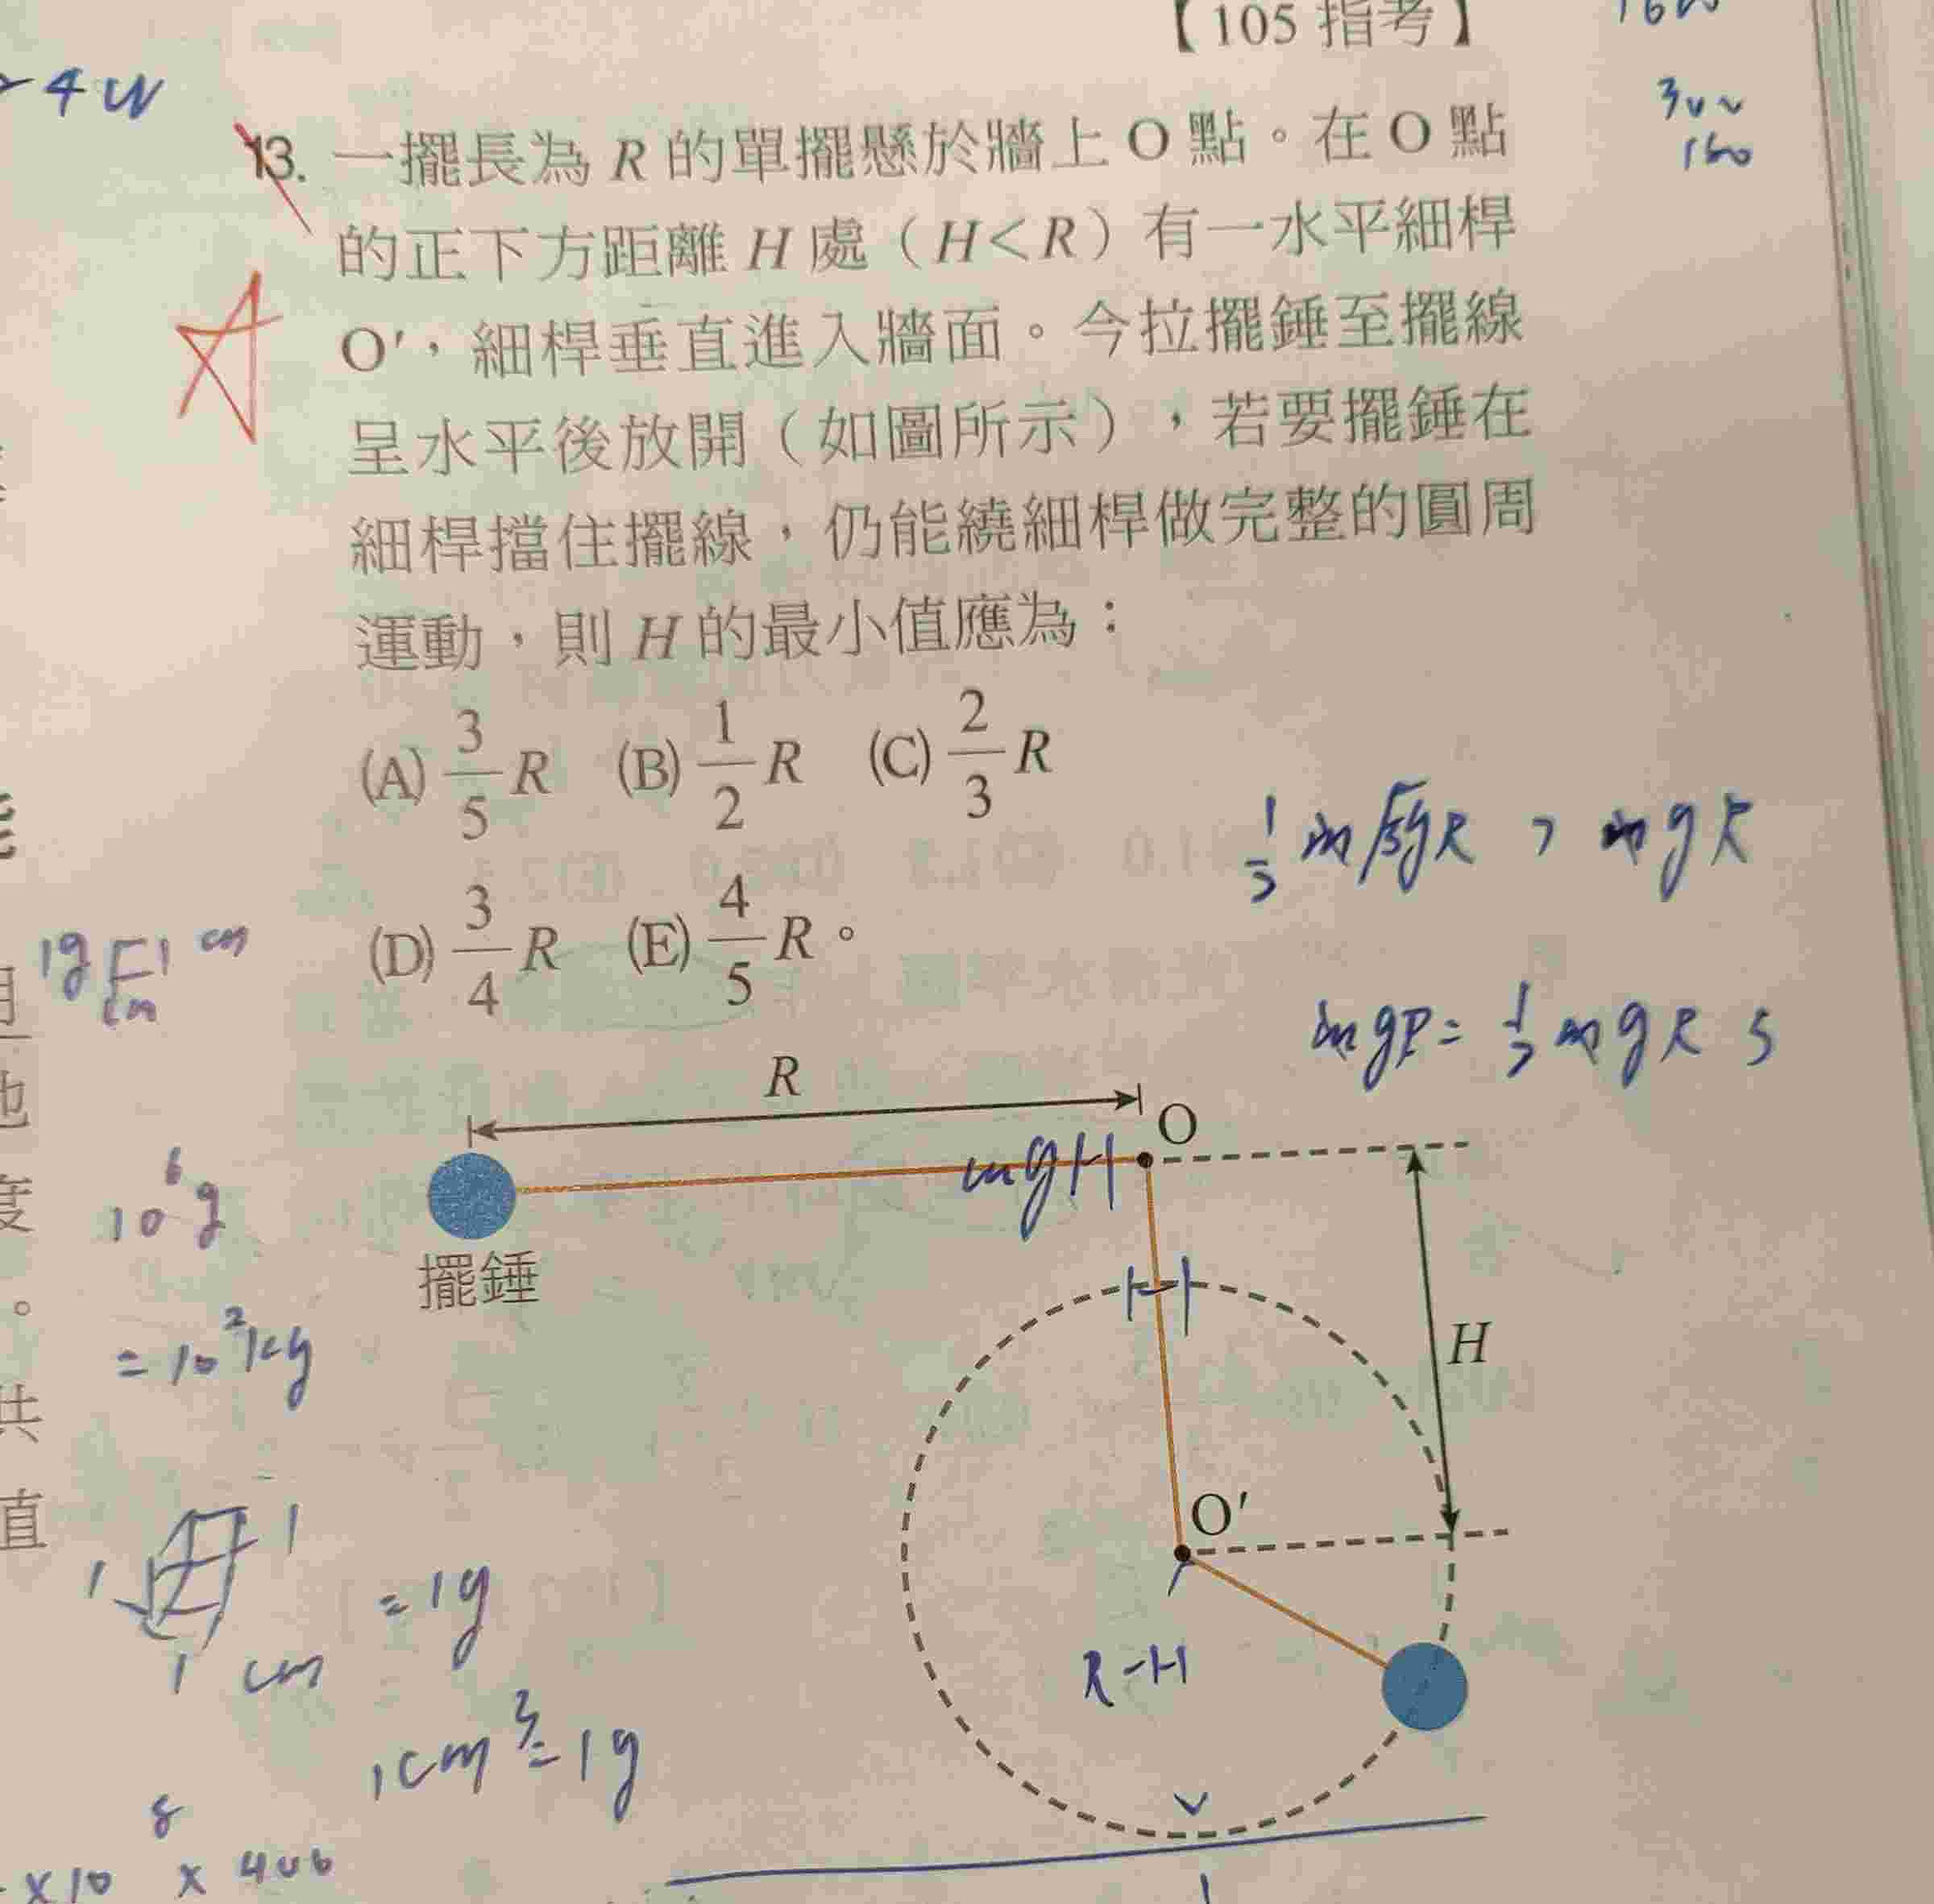 【105 指考】
4W
3v~
160
13. 一擺長為 R 的單擺懸於牆上 O 點。在 O 點
的正下方距離 H 處（H<R）有一水平細桿
O′，細桿垂直進入牆面。今拉擺錘至擺線
呈水平後放開（如圖所示），若要擺錘在
細桿擋住擺線，仍能繞細桿做完整的圓周
運動，則 H 的最小值應為：
(A) 3/5 R (B) 1/2 R (C) 2/3 R
(D) 3/4 R (E) 4/5 R。
mgR = 1/2 mgR 5
1g
cm
R
O
mgH
擺錘
10⁶g
= 10²kg
H
O′
R-H
1
1
1 cm
= 1g
1cm³=1g
x10⁸ x 400
度
。
共
直